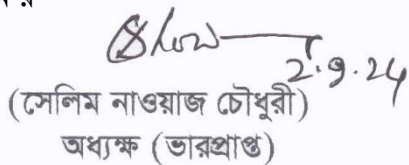 2.9.24
(সেলিম নাওয়াজ চৌধুরী)
অধ্যক্ষ (ভারপ্রাপ্ত)